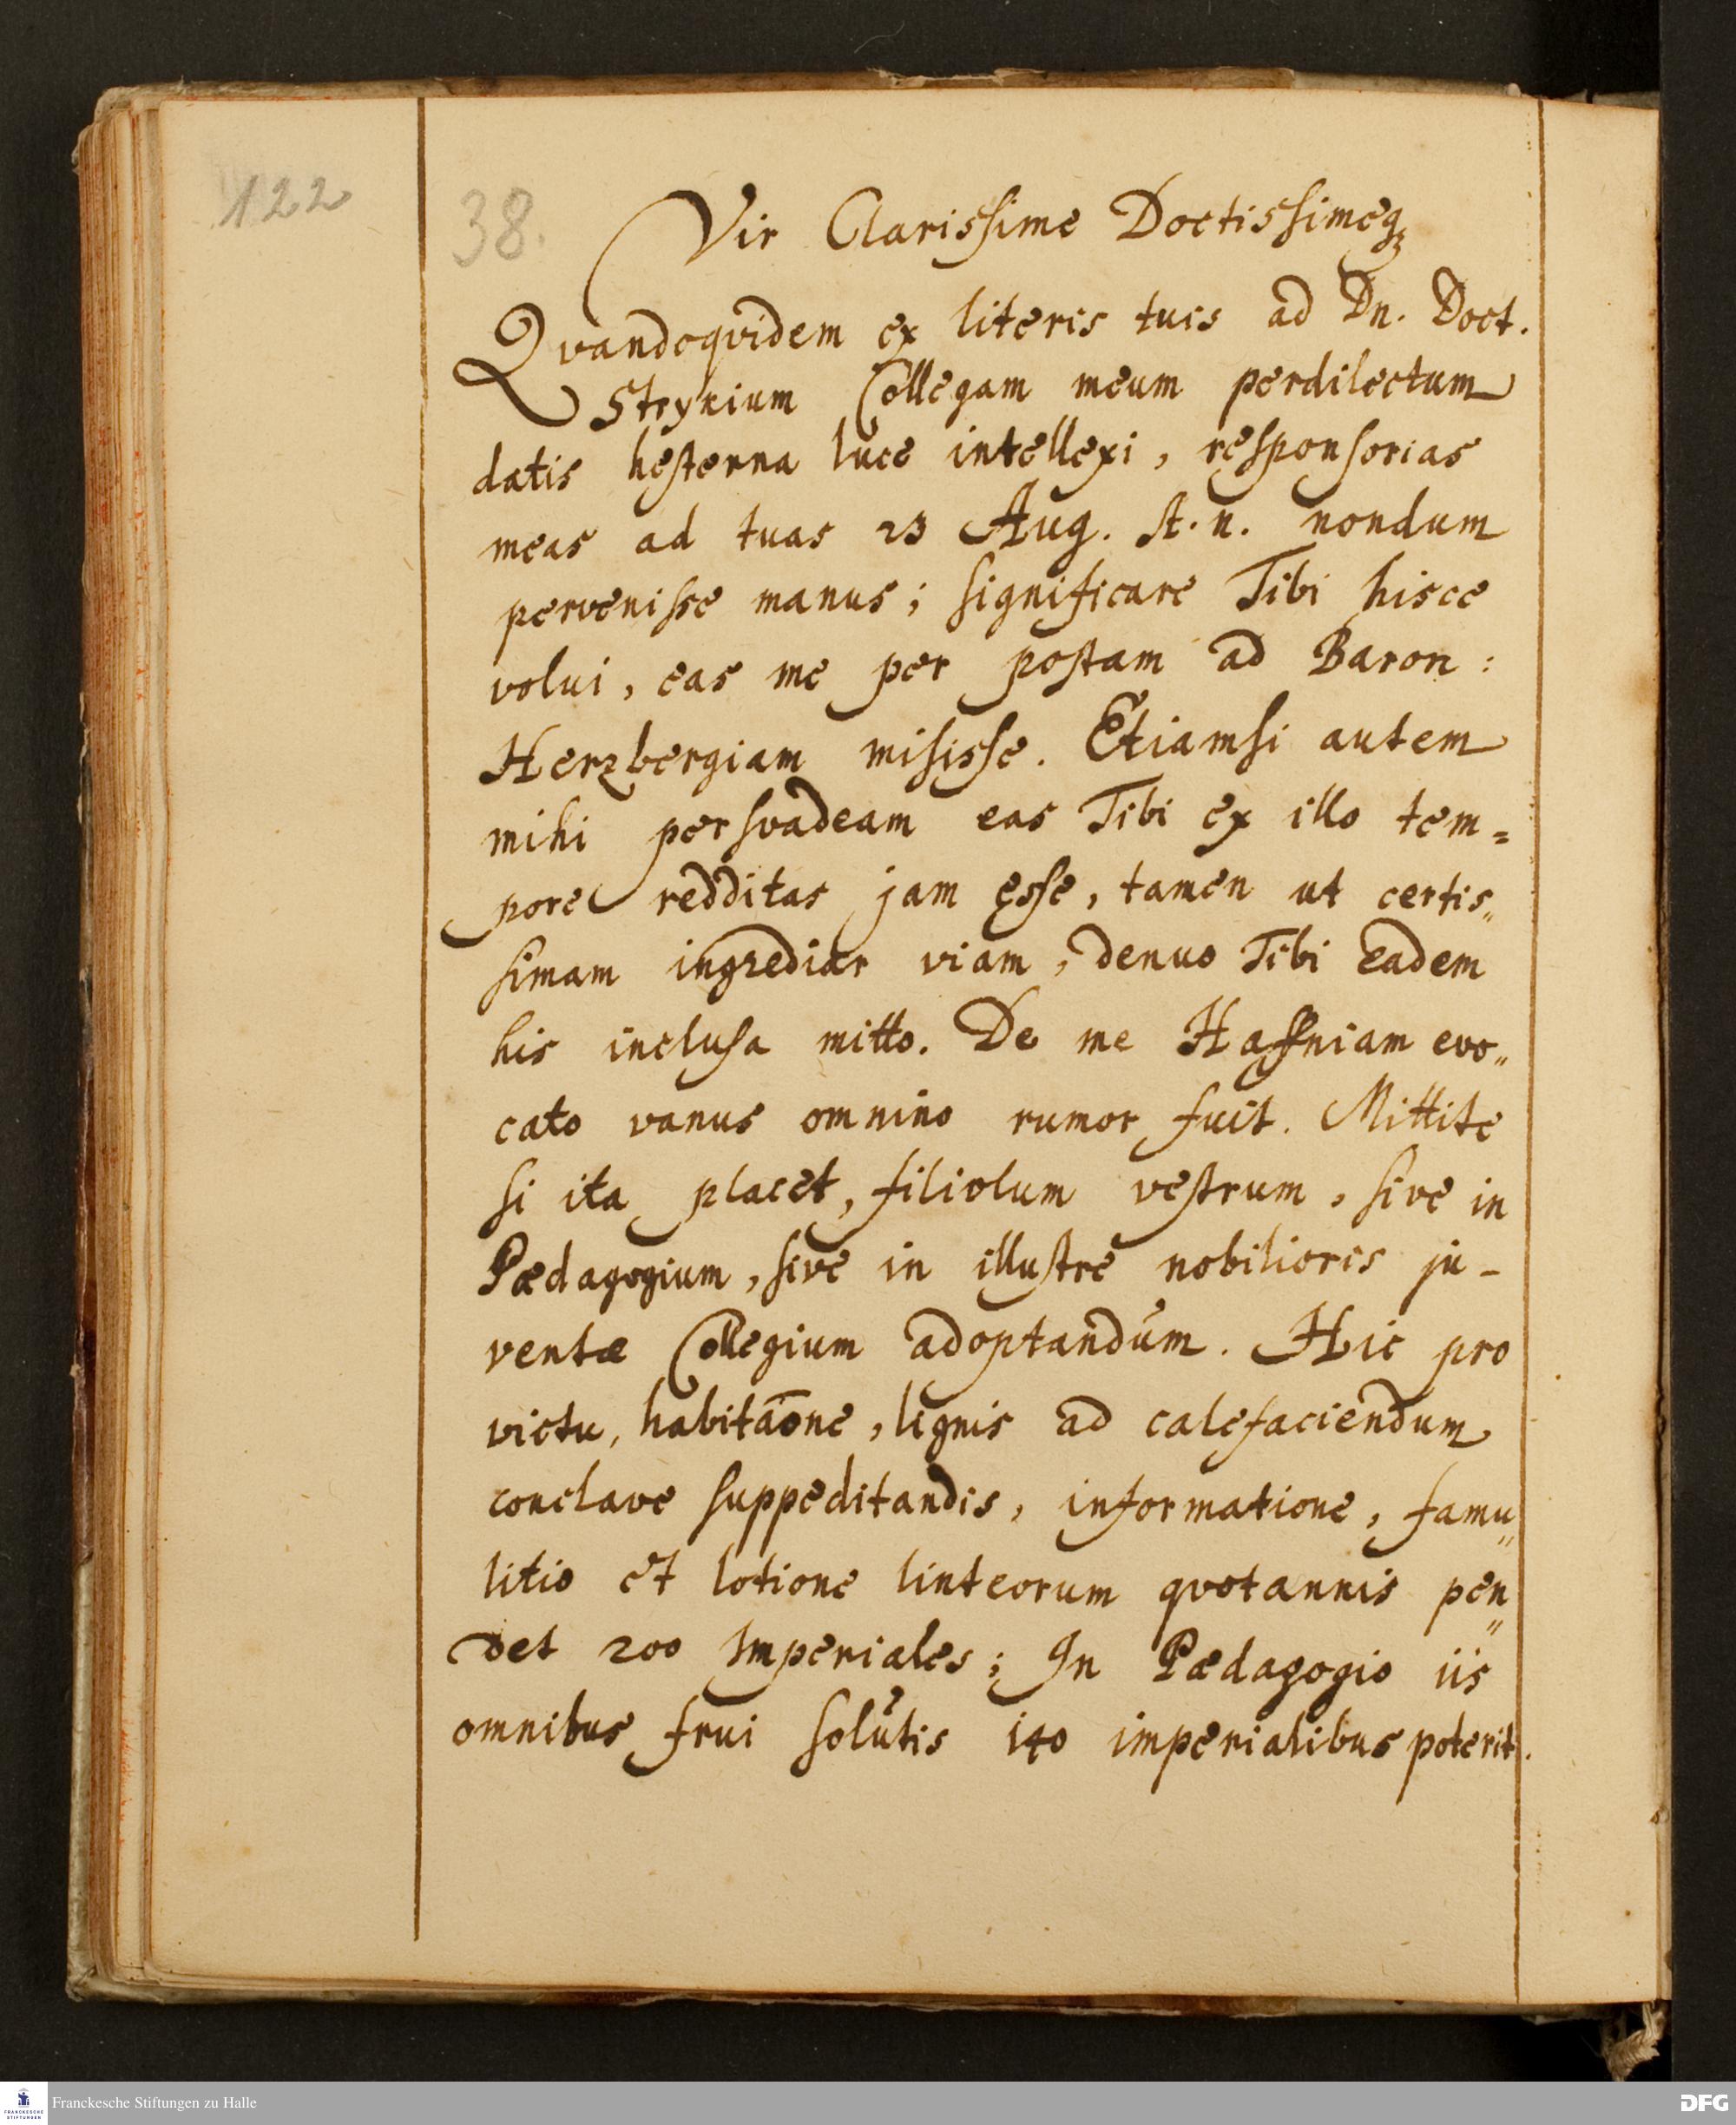 122
38.
Vir Clarissime Doctissimeqꝫ
Qvandoqvidem ex literis tuis ad Dn. Doct.
Strykium Collegam meum perdilectum
datis hesterna luce intellexi, responsorias
meas ad tuas 23 Aug. st. n. nondum
pervenisse manus; significare Tibi hisce
volui, eas me per postam ad Baron:
Herzbergiam misisse. Etiamsi autem
mihi persvadeam eas Tibi ex illo tem=
pore redditas jam esse, tamen ut certis„
simam ingrediar viam, denuo Tibi Eadem
his inclusa mitto. De me Haffniam evo„
cato vanus omnino rumor fuit. Mittite
si ita placet, filiolum vestrum, sive in
Pædagogium, sive in illustre nobilioris ju-
ventæ Collegium adoptandum. Hic pro
victu, habitaōne, lignis ad calefaciendum
conclave suppeditandis, informatione, famu„
litio et lotione linteorum qvotannis pen„
det 200 Imperiales; In Pædagogio iis
omnibus frui solutis 140 imperialibus poterit.
FRANCKESCHE
STIFTUNGEN
Franckesche Stiftungen zu Halle
DFG